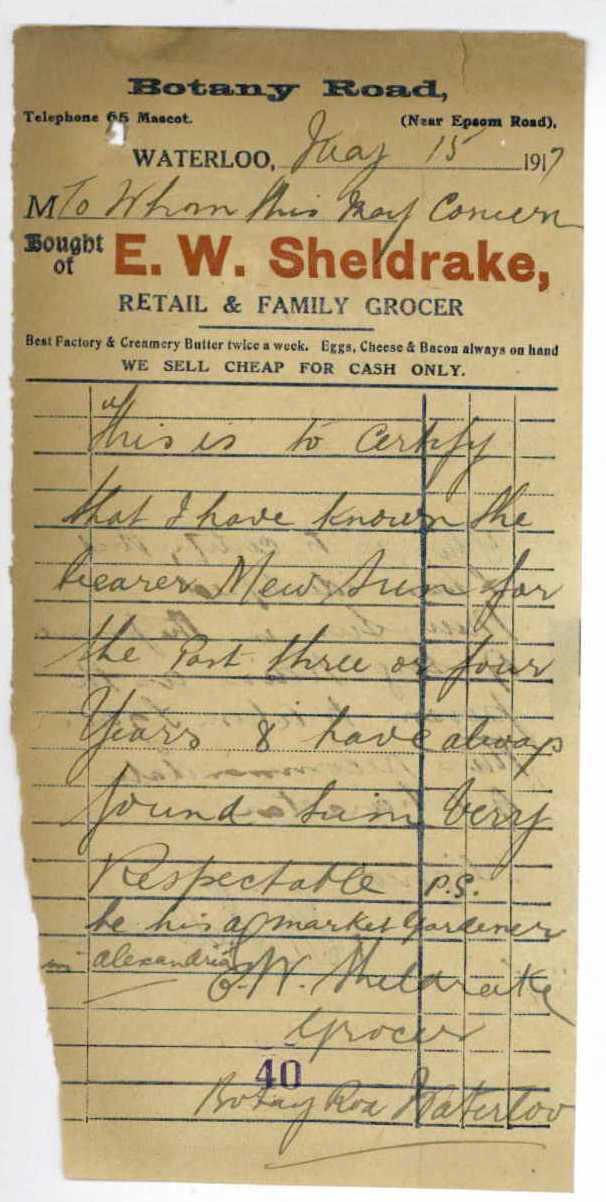 Botany Road,
Telephone 65 Mascot. (Near Epsom Road),
WATERLOO, May 15 1917
M To Whom this May Concern
Bought of E. W. Sheldrake,
RETAIL & FAMILY GROCER
Best Factory & Creamery Butter twice a week. Eggs, Cheese & Bacon always on hand
WE SELL CHEAP FOR CASH ONLY.
This is to Certify
that I have known the
bearer Mew Sun for
the Past three or four
Years & have always
found him very
Respectable P.S.
he his a market Gardener
in alexandria E. W. Sheldrake
Grocer
40
Botany Road Waterloo